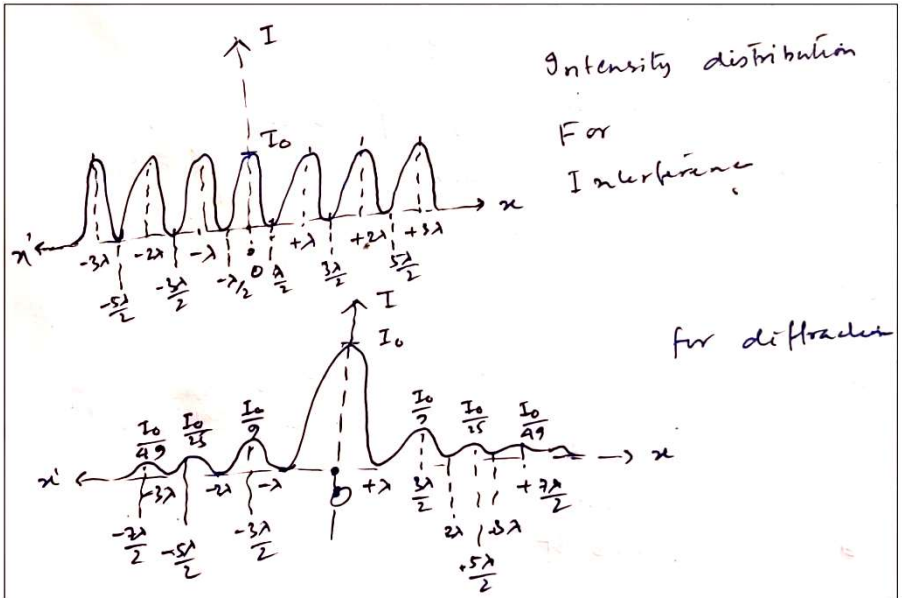 I
I₀
Intensity distribution
For
Interference
x' -3λ -2λ -λ 0 +λ +2λ +3λ x
-5λ/2 -3λ/2 -λ/2 λ/2 3λ/2 5λ/2
I
I₀
for diffraction
I₀/49 I₀/25 I₀/9 I₀/9 I₀/25 I₀/49
x' -3λ -2λ -λ 0 +λ 3λ/2 2λ +3λ +7λ/2 x
-7λ/2 -5λ/2 -3λ/2 +5λ/2